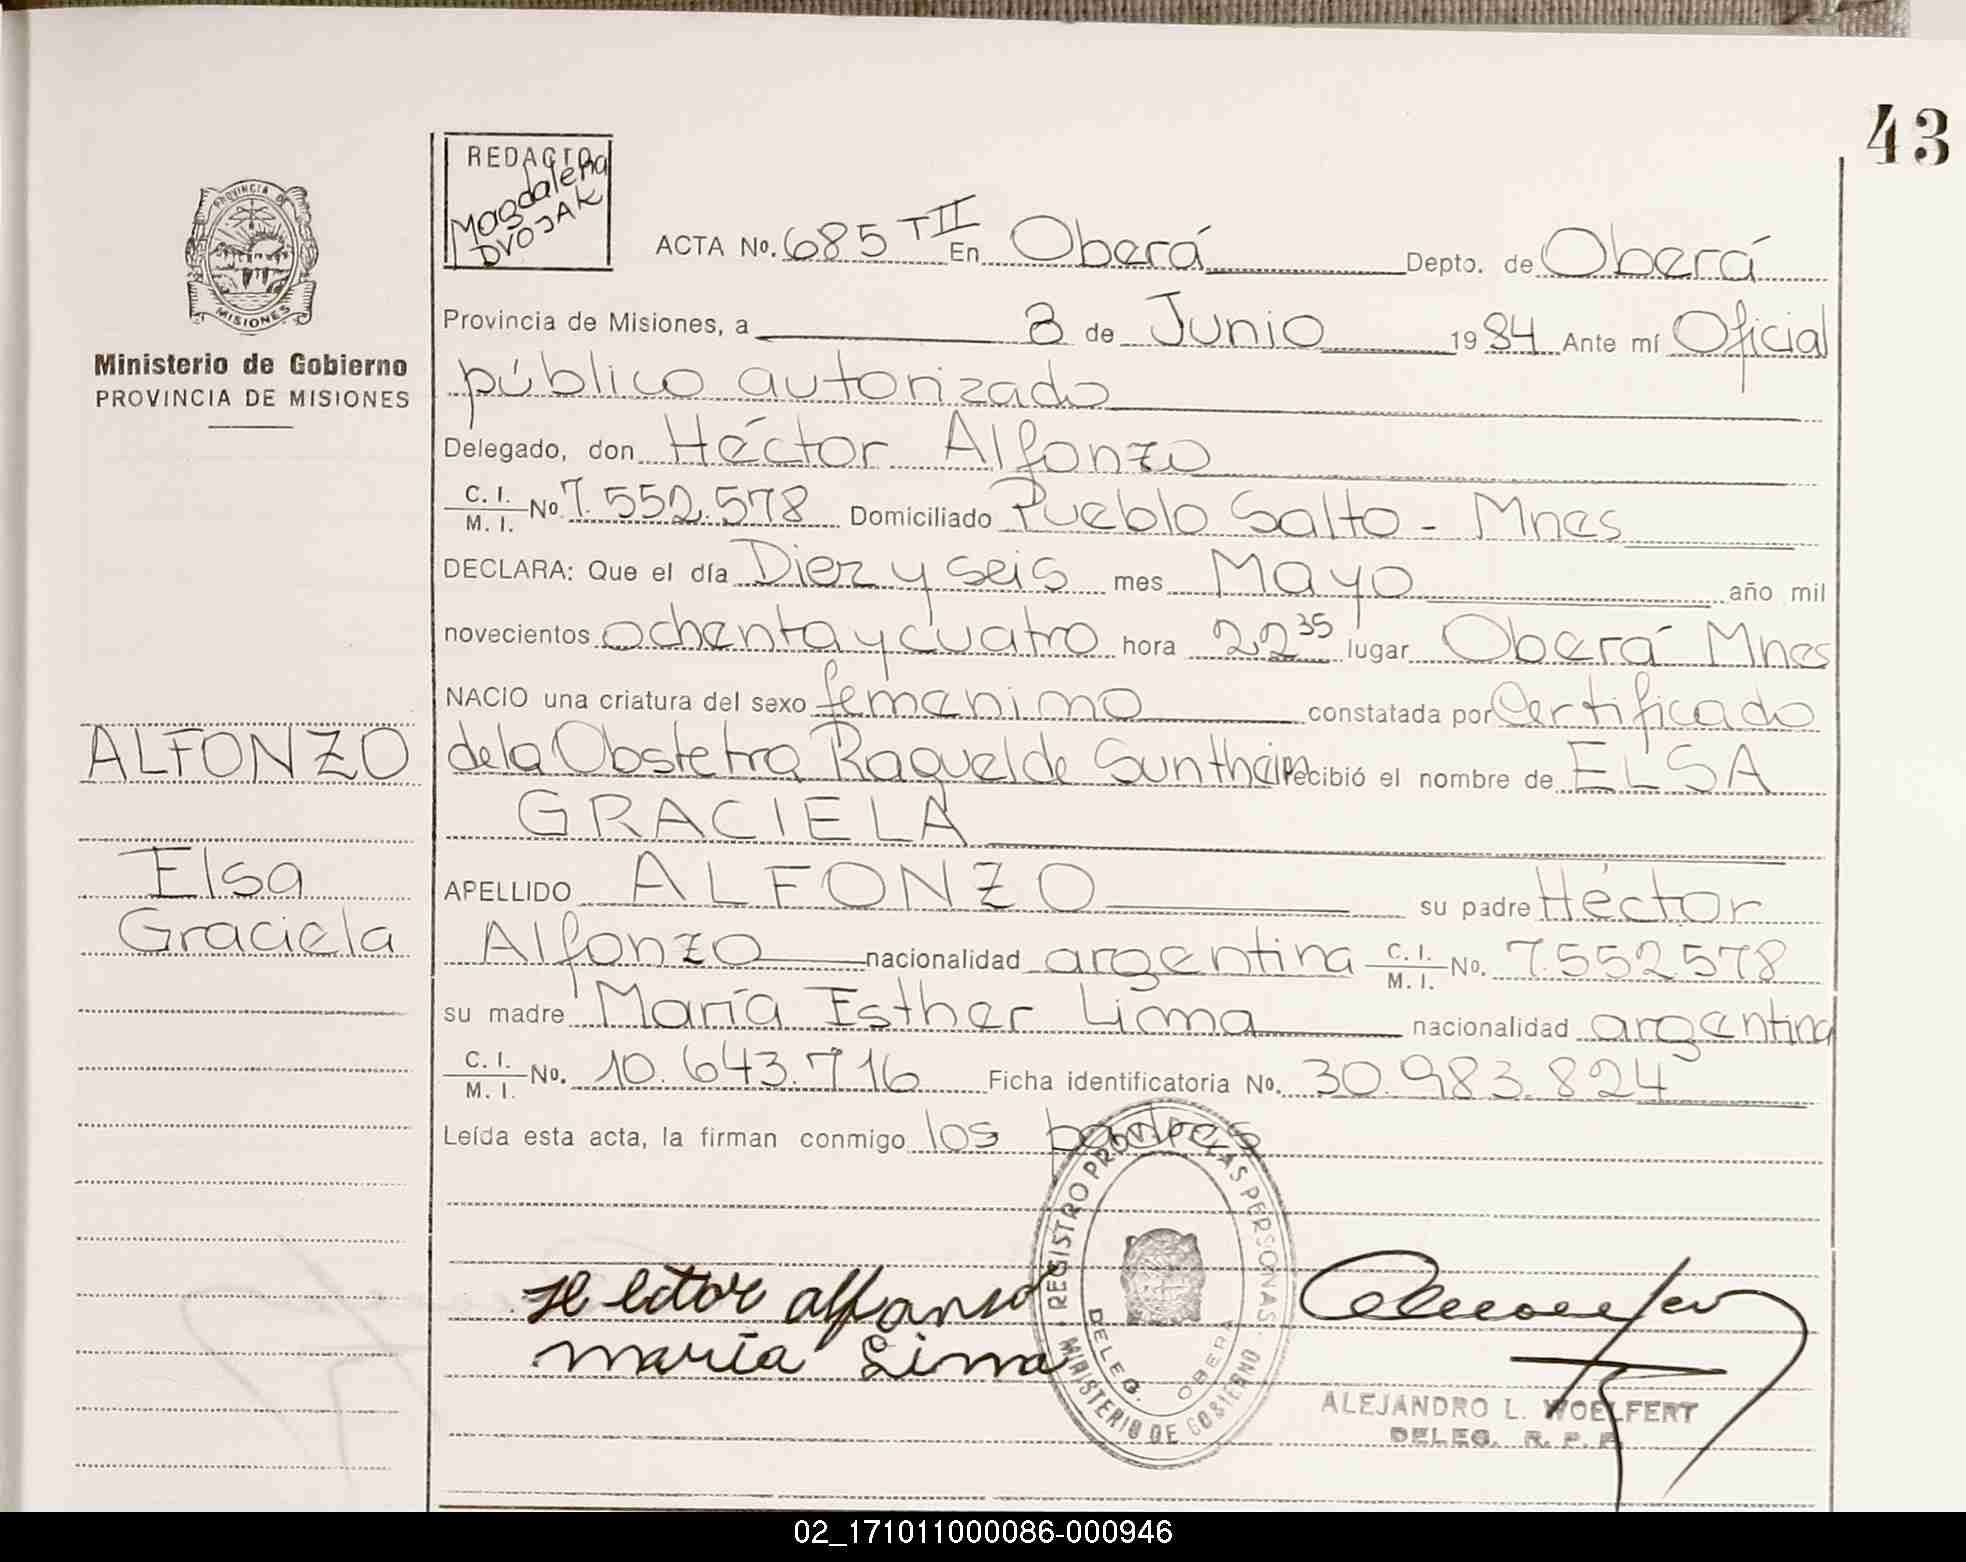 43
REDACTO
Magdalena
DVOJAK
PROVINCIA DE
MISIONES
Ministerio de Gobierno
PROVINCIA DE MISIONES
ACTA No. 685 TII En Oberá Depto. de Oberá
Provincia de Misiones, a 8 de Junio 1984 Ante mí Oficial
público autorizado
Delegado, don Héctor Alfonzo
C. I. / M. I. No 7.552.578 Domiciliado Pueblo Salto - Mnes
DECLARA: Que el día Diez y seis mes Mayo año mil
novecientos ochenta y cuatro hora 22 35 lugar Oberá Mnes
NACIO una criatura del sexo femenino constatada por Certificado
de la Obstetra Raquel de Sunthein recibió el nombre de ELSA
GRACIELA
APELLIDO ALFONZO su padre Héctor
Alfonzo nacionalidad argentina C. I. / M. I. No. 7.552.578
su madre María Esther Lima nacionalidad argentina
C. I. / M. I. No. 10.643.716 Ficha identificatoria No. 30.983.824
Leída esta acta, la firman conmigo los padres
ALFONZO
Elsa
Graciela
Hector alfonso
maría Lima
REGISTRO PROV. DE LAS PERSONAS
MINISTERIO DE GOBIERNO
DELEG. OBERA
ALEJANDRO L. WOELFERT
DELEG. R. P. P.
02_171011000086-000946